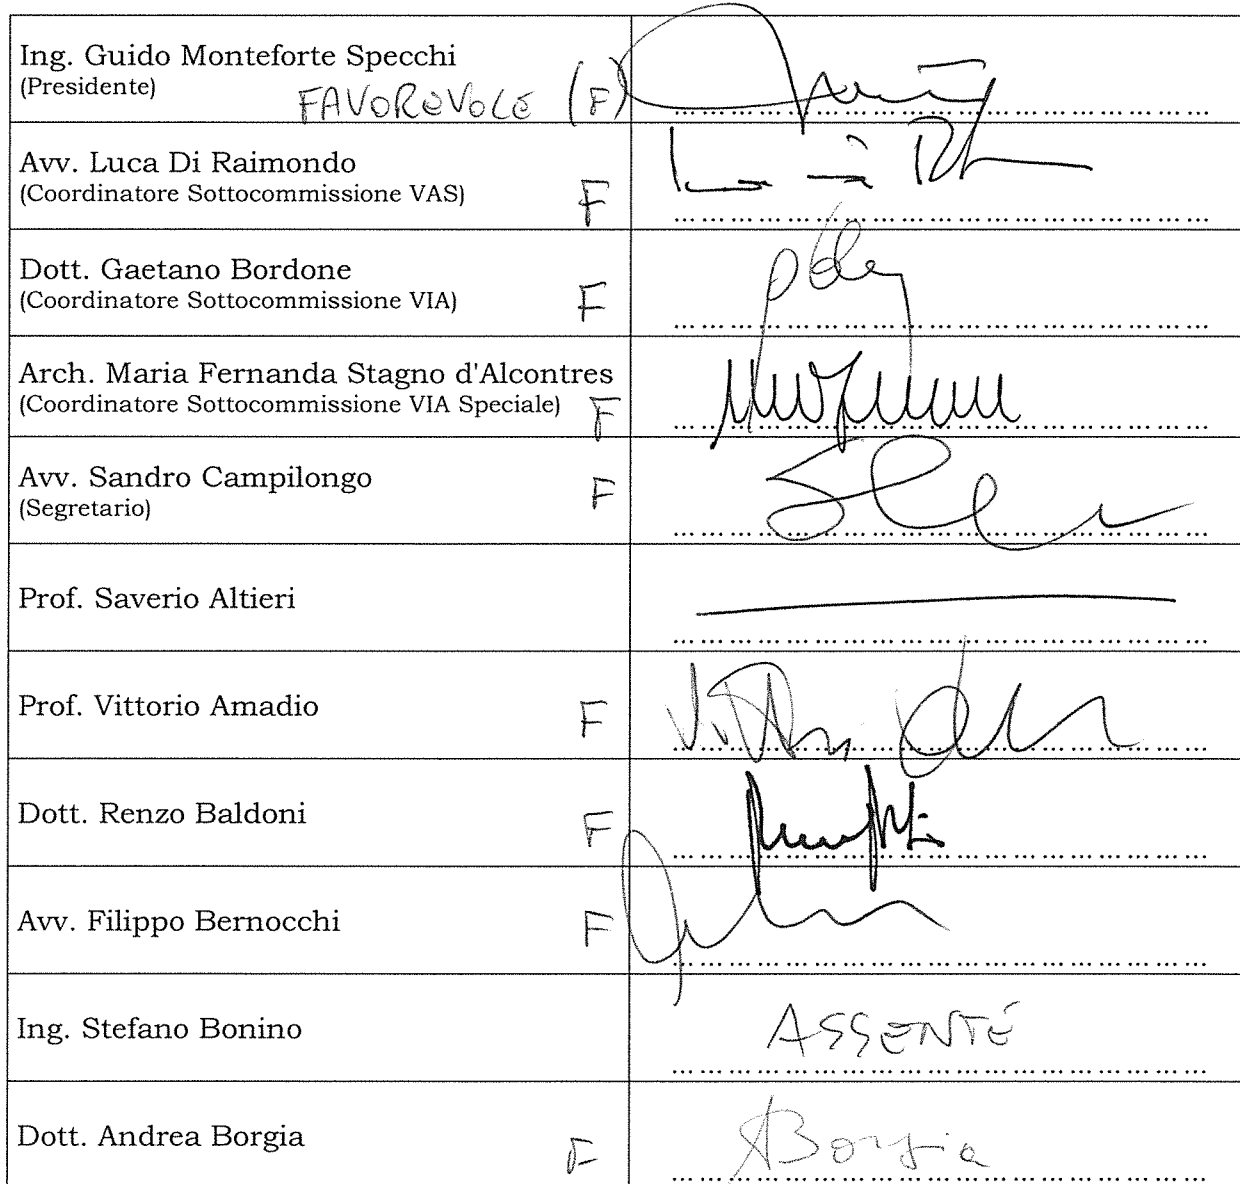 Ing. Guido Monteforte Specchi
(Presidente)
FAVOREVOLE (F)
Avv. Luca Di Raimondo
(Coordinatore Sottocommissione VAS)
F
Dott. Gaetano Bordone
(Coordinatore Sottocommissione VIA)
F
Arch. Maria Fernanda Stagno d'Alcontres
(Coordinatore Sottocommissione VIA Speciale)
F
Avv. Sandro Campilongo
(Segretario)
F
Prof. Saverio Altieri
Prof. Vittorio Amadio
F
Dott. Renzo Baldoni
F
Avv. Filippo Bernocchi
F
Ing. Stefano Bonino
ASSENTE
Dott. Andrea Borgia
F
ABorgia